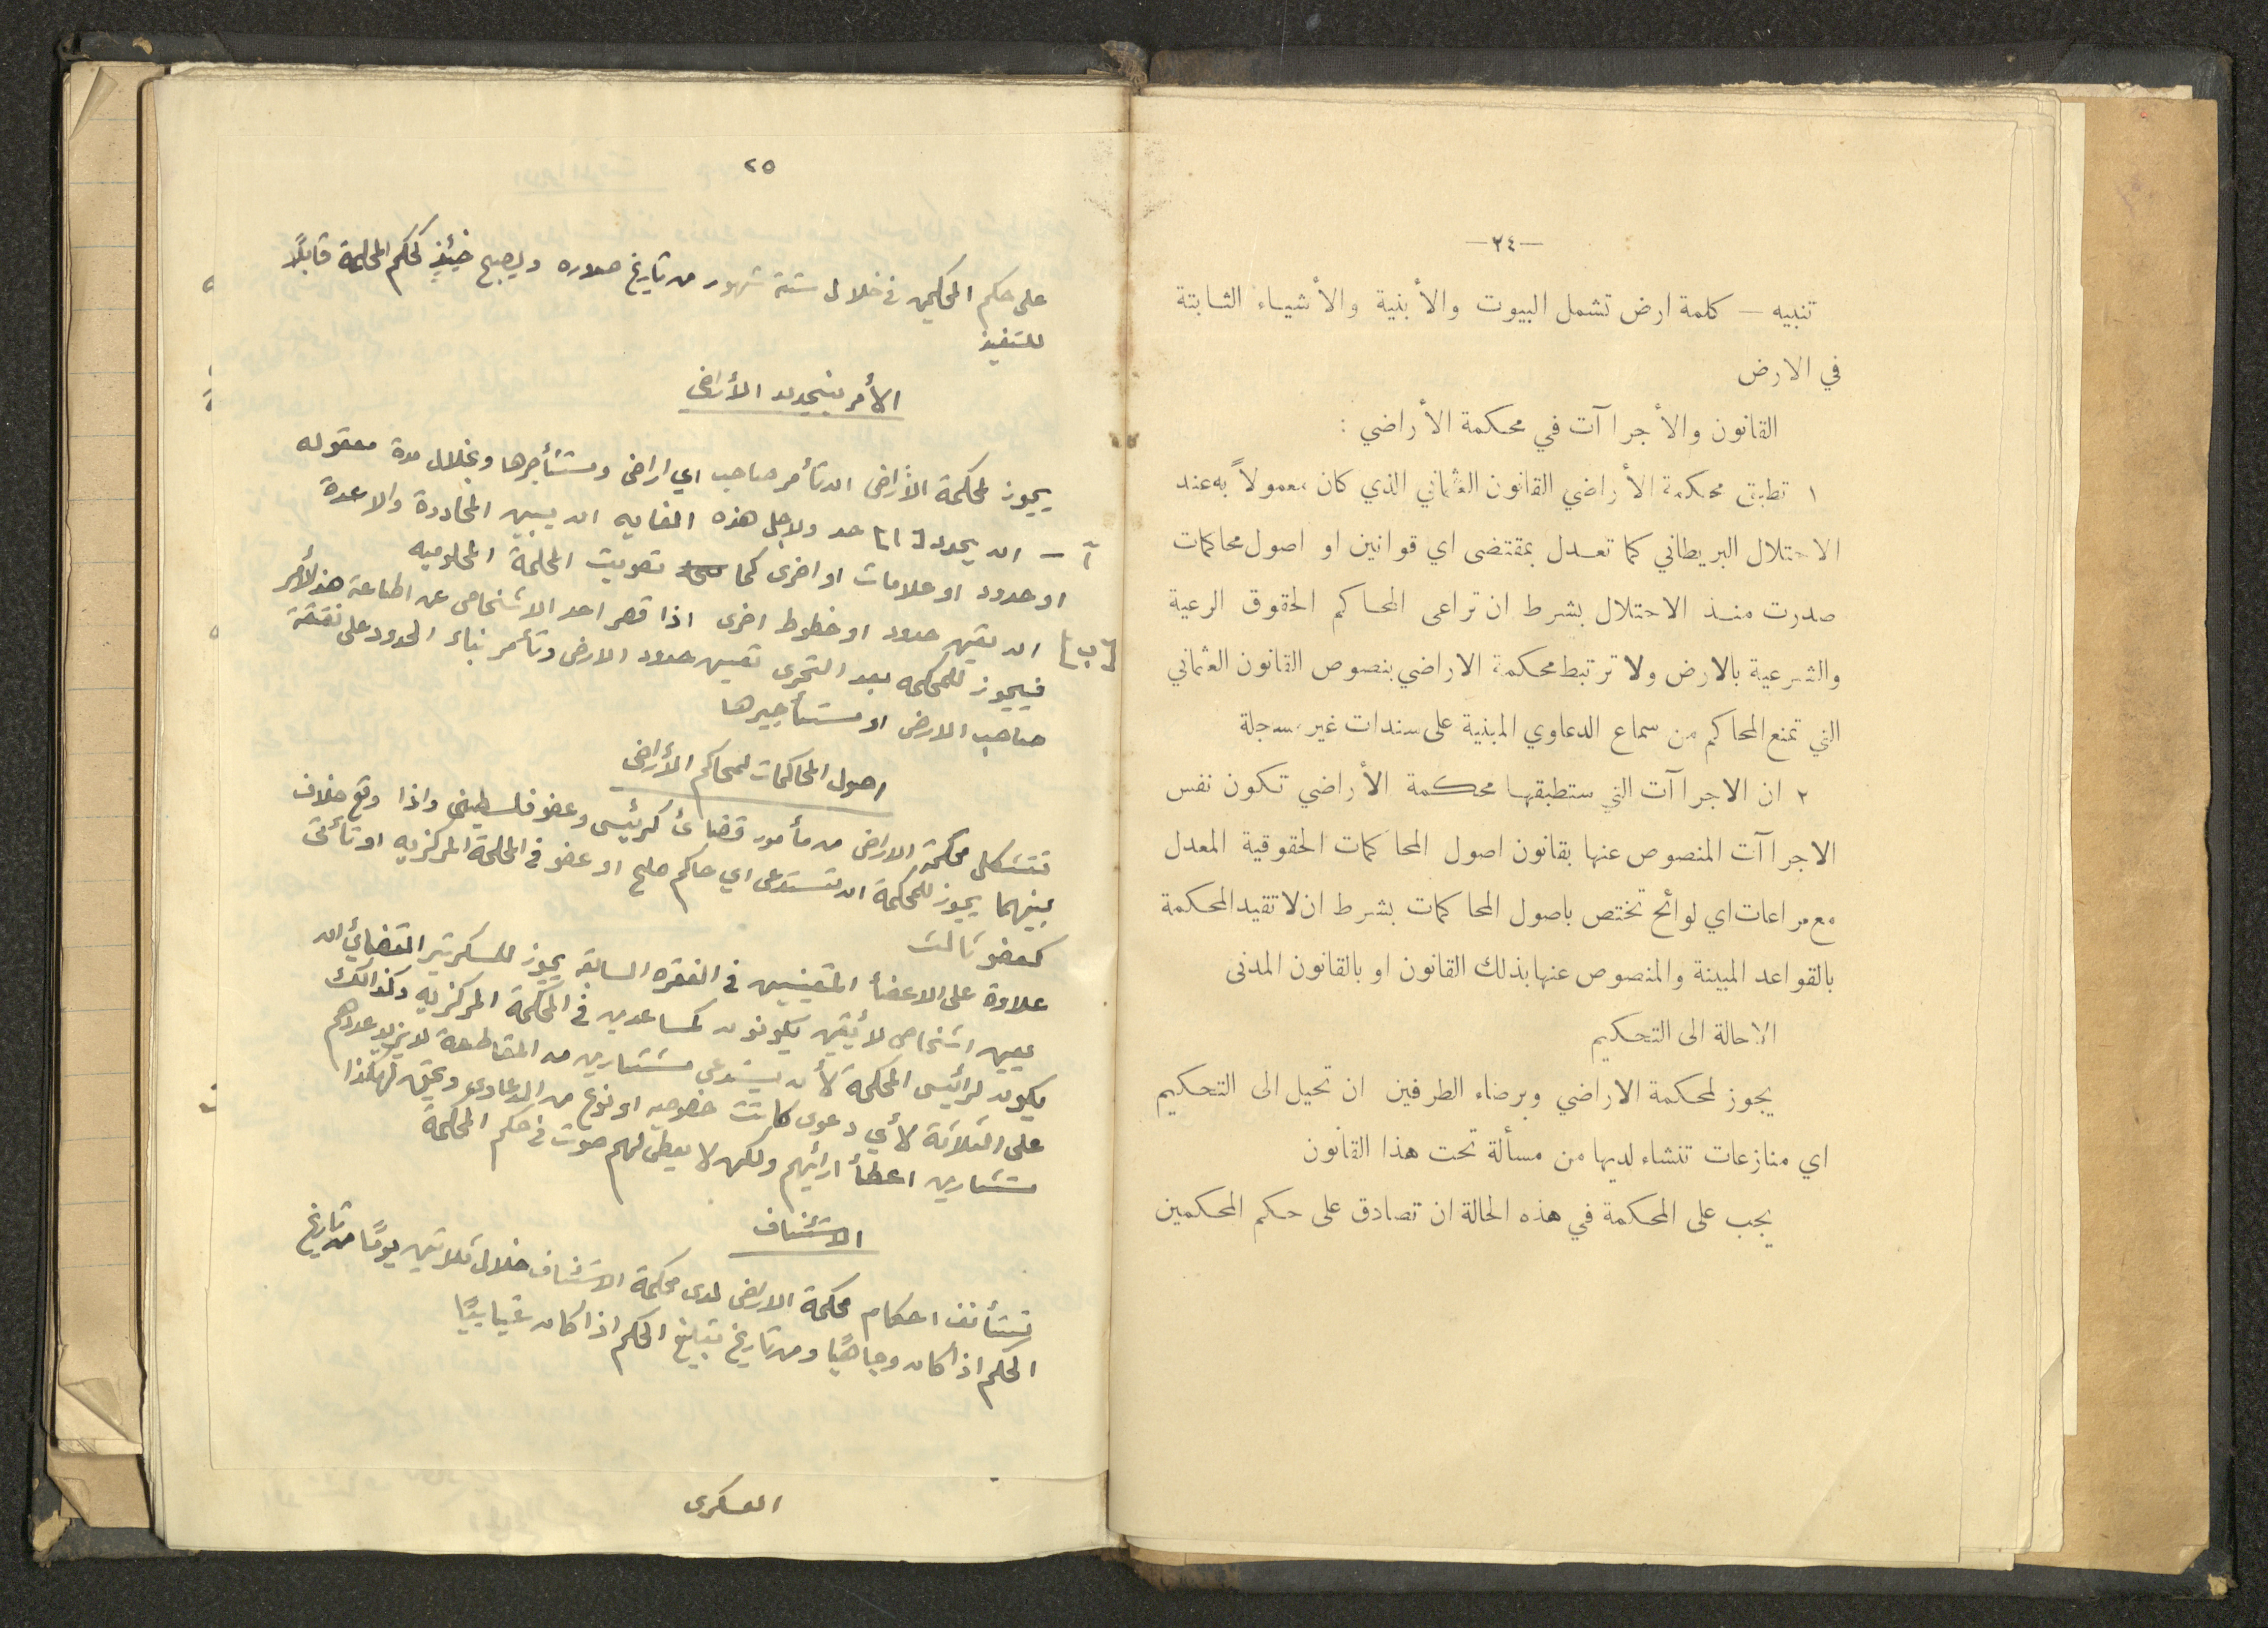 —٢٤—
تنبيه — كلمة ارض تشمل البيوت والأبنية والأشياء الثابتة
في الارض
القانون والأجراآت في محكمة الأراضي :
١ تطبق محكمة الأراضي القانون العثماني الذي كان معمولاً به عند
الاحتلال البريطاني كما تعدل بمقتضى اي قوانين او اصول محاكمات
صدرت منذ الاحتلال بشرط ان تراعى المحاكم الحقوق الرعية
والشرعية بالارض ولا ترتبط محكمة الاراضي بنصوص القانون العثماني
التي تمنع المحاكم من سماع الدعاوي المبنية على سندات غير مسجلة
٢ ان الاجراآت التي ستطبقها محكمة الأراضي تكون نفس
الاجراآت المنصوص عنها بقانون اصول المحاكمات الحقوقية المعدل
مع مراعات اي لوائح تختص باصول المحاكمات بشرط ان لا تقيد المحكمة
بالقواعد المبينة والمنصوص عنها بذلك القانون او بالقانون المدنى
الاحالة الى التحكيم
يجوز لمحكمة الاراضي وبرضاء الطرفين ان تحيل الى التحكيم
اي منازعات تنشاء لديها من مسألة تحت هذا القانون
يجب على المحكمة في هذه الحالة ان تصادق على حكم المحكمين
٢٥
على حكم المحكمين في خلال ستة شهور من تاريخ صدوره ويصبح حينئذ لحكم المحكمة قابلاً
للتنفيذ
الأمر بتحديد الأراضي
يجوز لمحكمة الأراضى ان تأمر صاحب اي اراضى ومستأجرها وبخلال مدة معقوله
آ - ان يحدد [ا] حد ولاجل هذه الغايه ان يبين المحاددة والاعمدة
او حدود او علامات او اخرى كما تصوبت المحكمة المحلوميه
[ب] ان يعين حدود او خطوط اخرى اذا قصر احد الاشخاص عن اطاعة هذا الأمر
فيجوز للمحكمه بعد التحرى تعيين حدود الارض وتأمر بناء الحدود على نفقة
صاحب الارض او مستأجيرها
اصول المحاكمات لمحاكم الأراضى
تتشكل محكمة الاراضى من مأمور قضائ كرئيس وعضو فلسطينى واذا وقع خلاف
بينهما يجوز للمحكمة ان تستدعى اي حاكم صلح او عضو في المحكمة المركزيه او تأتى
كعضو ثالث
علاوة على الاعضأ المعينين في الفقره السابقه يجوز للسكرتير القضائي ان
يعين اشخاص لائقين يكونون كمساعدين في المحكمة المركزيه وكذالك
يكون لرائيس المحكمة لأن يستدعى مستشارين من المقاطعة لا يزيد عددهم
على الثلاثة لأي دعوى كانت خصوصيه او نوع من الدعاوى ويحق لهكذا
مستشارين اعطأ ارائهم ولكن لا يعطى لهم صوت في حكم المحكمة
الاستئناف
تستأنف احكام محكمة الاراضى لدى محكمة الاستئناف خلال ثلاثين يومًا من تاريخ
الحكم اذا كان وجاهيًا ومن تاريخ تبليغ الحكم اذا كان غيابيًا
العسكرى